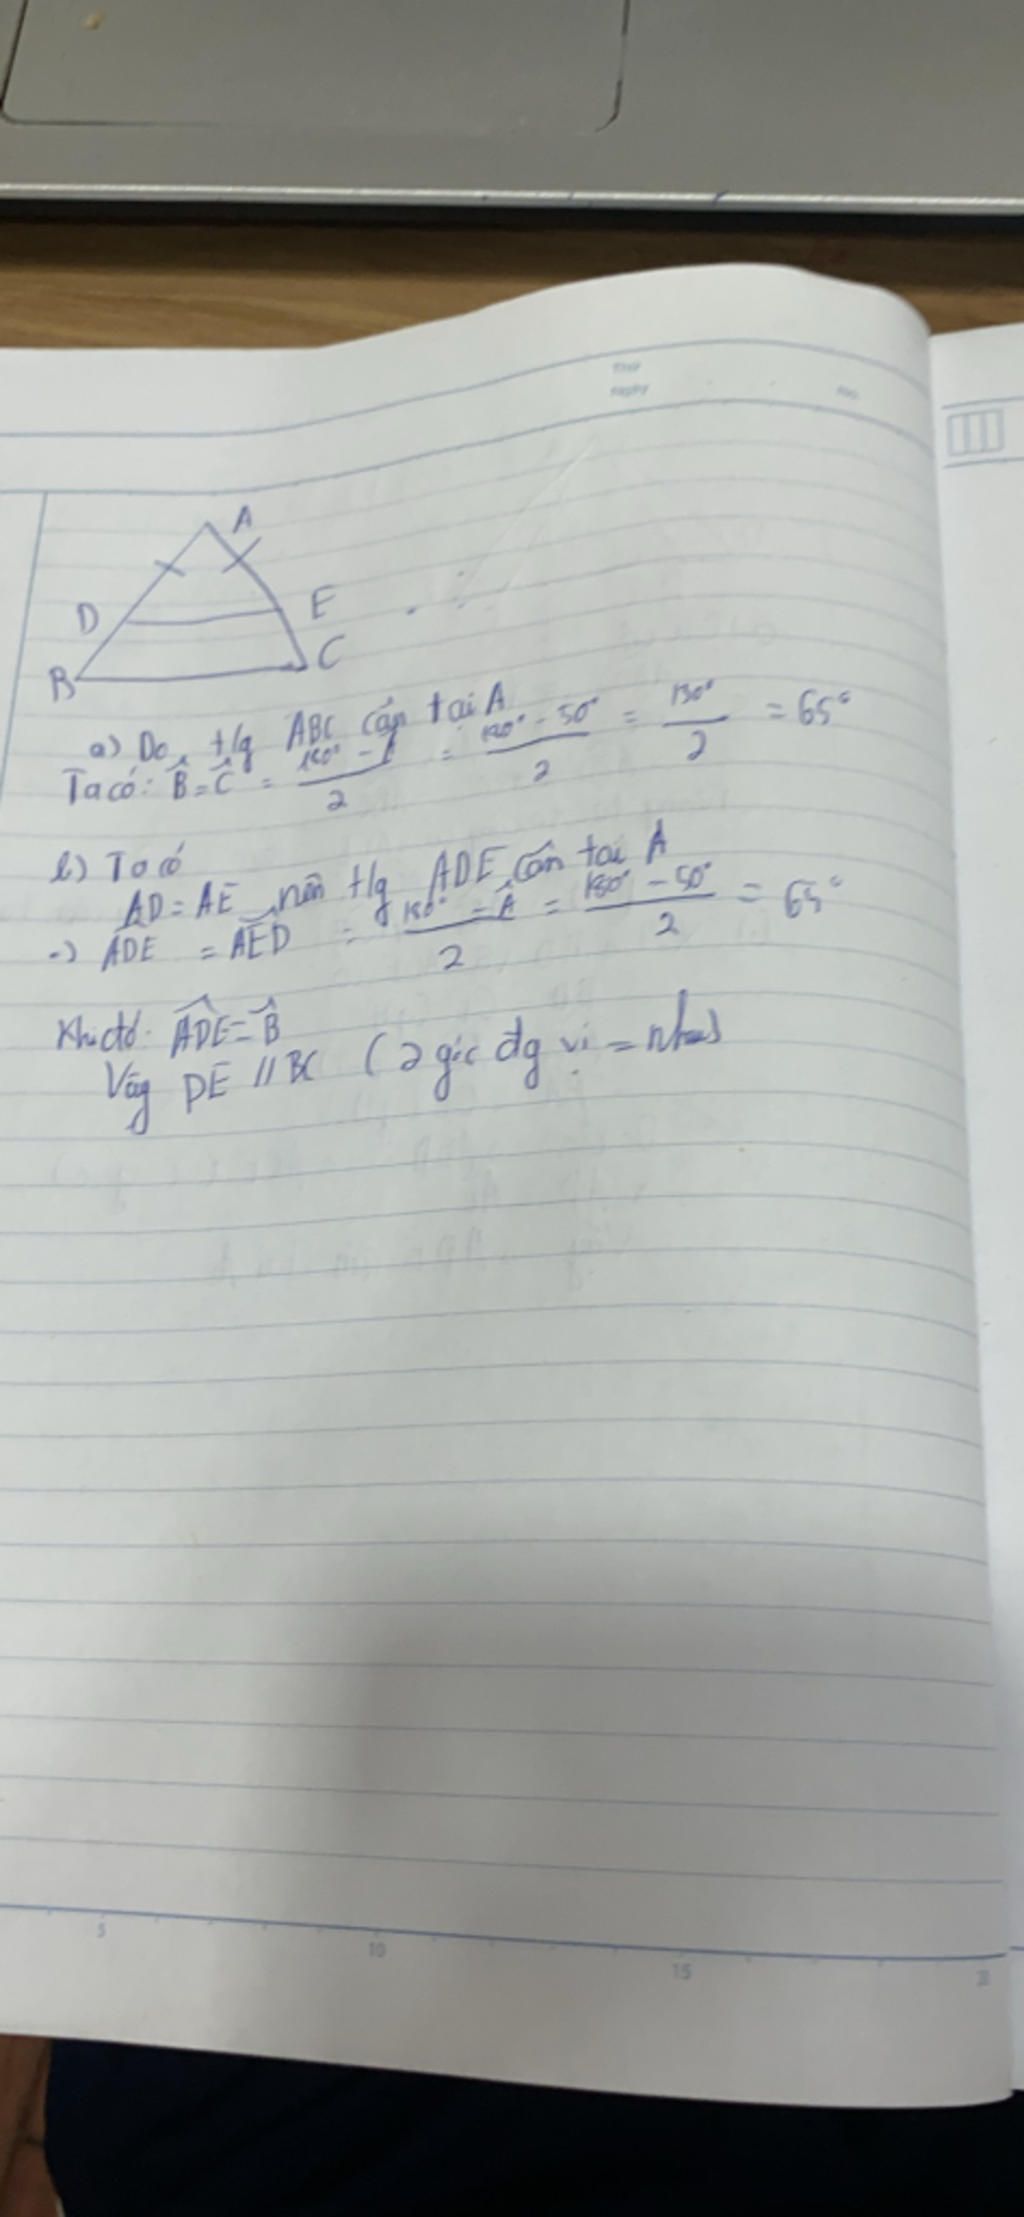 A
D
E
B
C
a) Do t/g ABC cân tại A
Ta có: B̂ = Ĉ = (180° - Â)/2 = (180° - 50°)/2 = 130°/2 = 65°
b) Ta có
AD = AE nên t/g ADE cân tại A
=> ADE = AED = (180° - Â)/2 = (180° - 50°)/2 = 65°
Khi đó: ADE = B̂
Vậy DE // BC (2 góc đg vị = nhau)
5
10
15